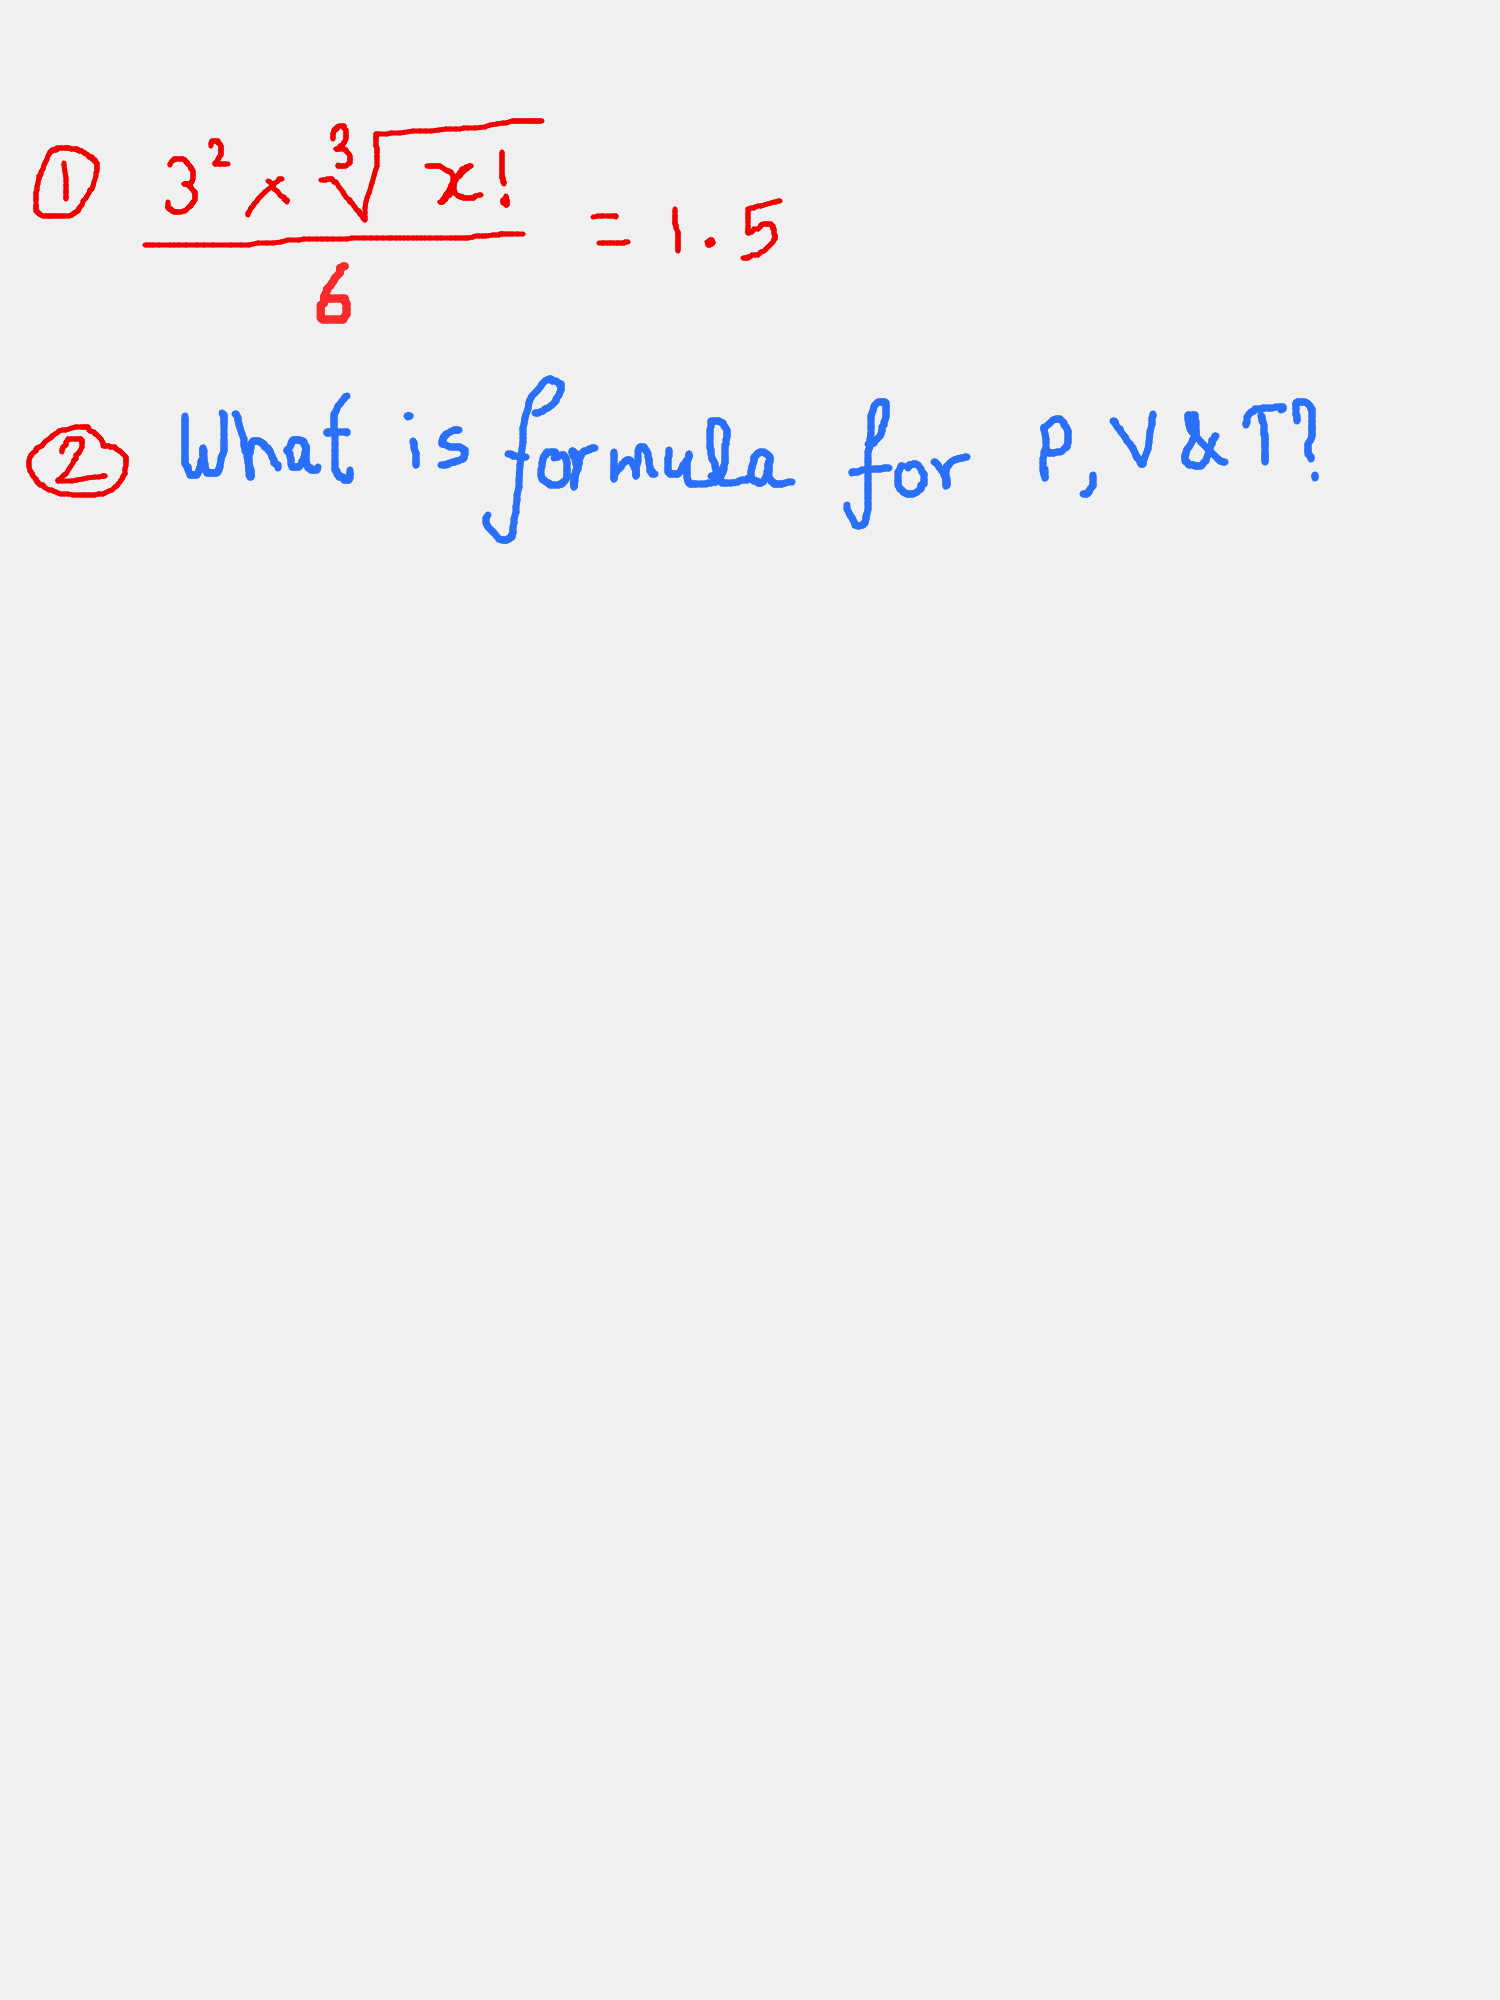 ① 3² × ∛x! / 6 = 1.5
② What is formula for P, V & T?